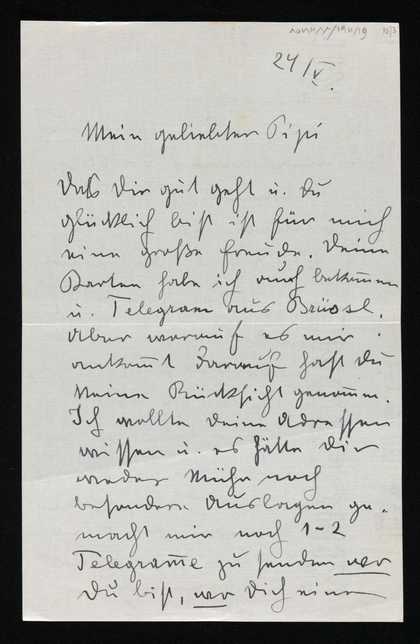 24/V.
Mein geliebter Pipsi
Daß Dir gut geht u. du
glücklich bist ist für mich
eine große Freude. Deine
Karten habe ich auch bekommen
u. Telegram aus Brüssel.
Aber worauf es mir
ankom̅t darauf hast du
keine Rücksicht genom̅en.
Ich wollte deine Adressen
wissen u. es hätte dir
weder Mühe noch
besondere Auslagen ge-
macht mir noch 1-2
Telegram̅e zu senden wo
du bist, wo Dich eine